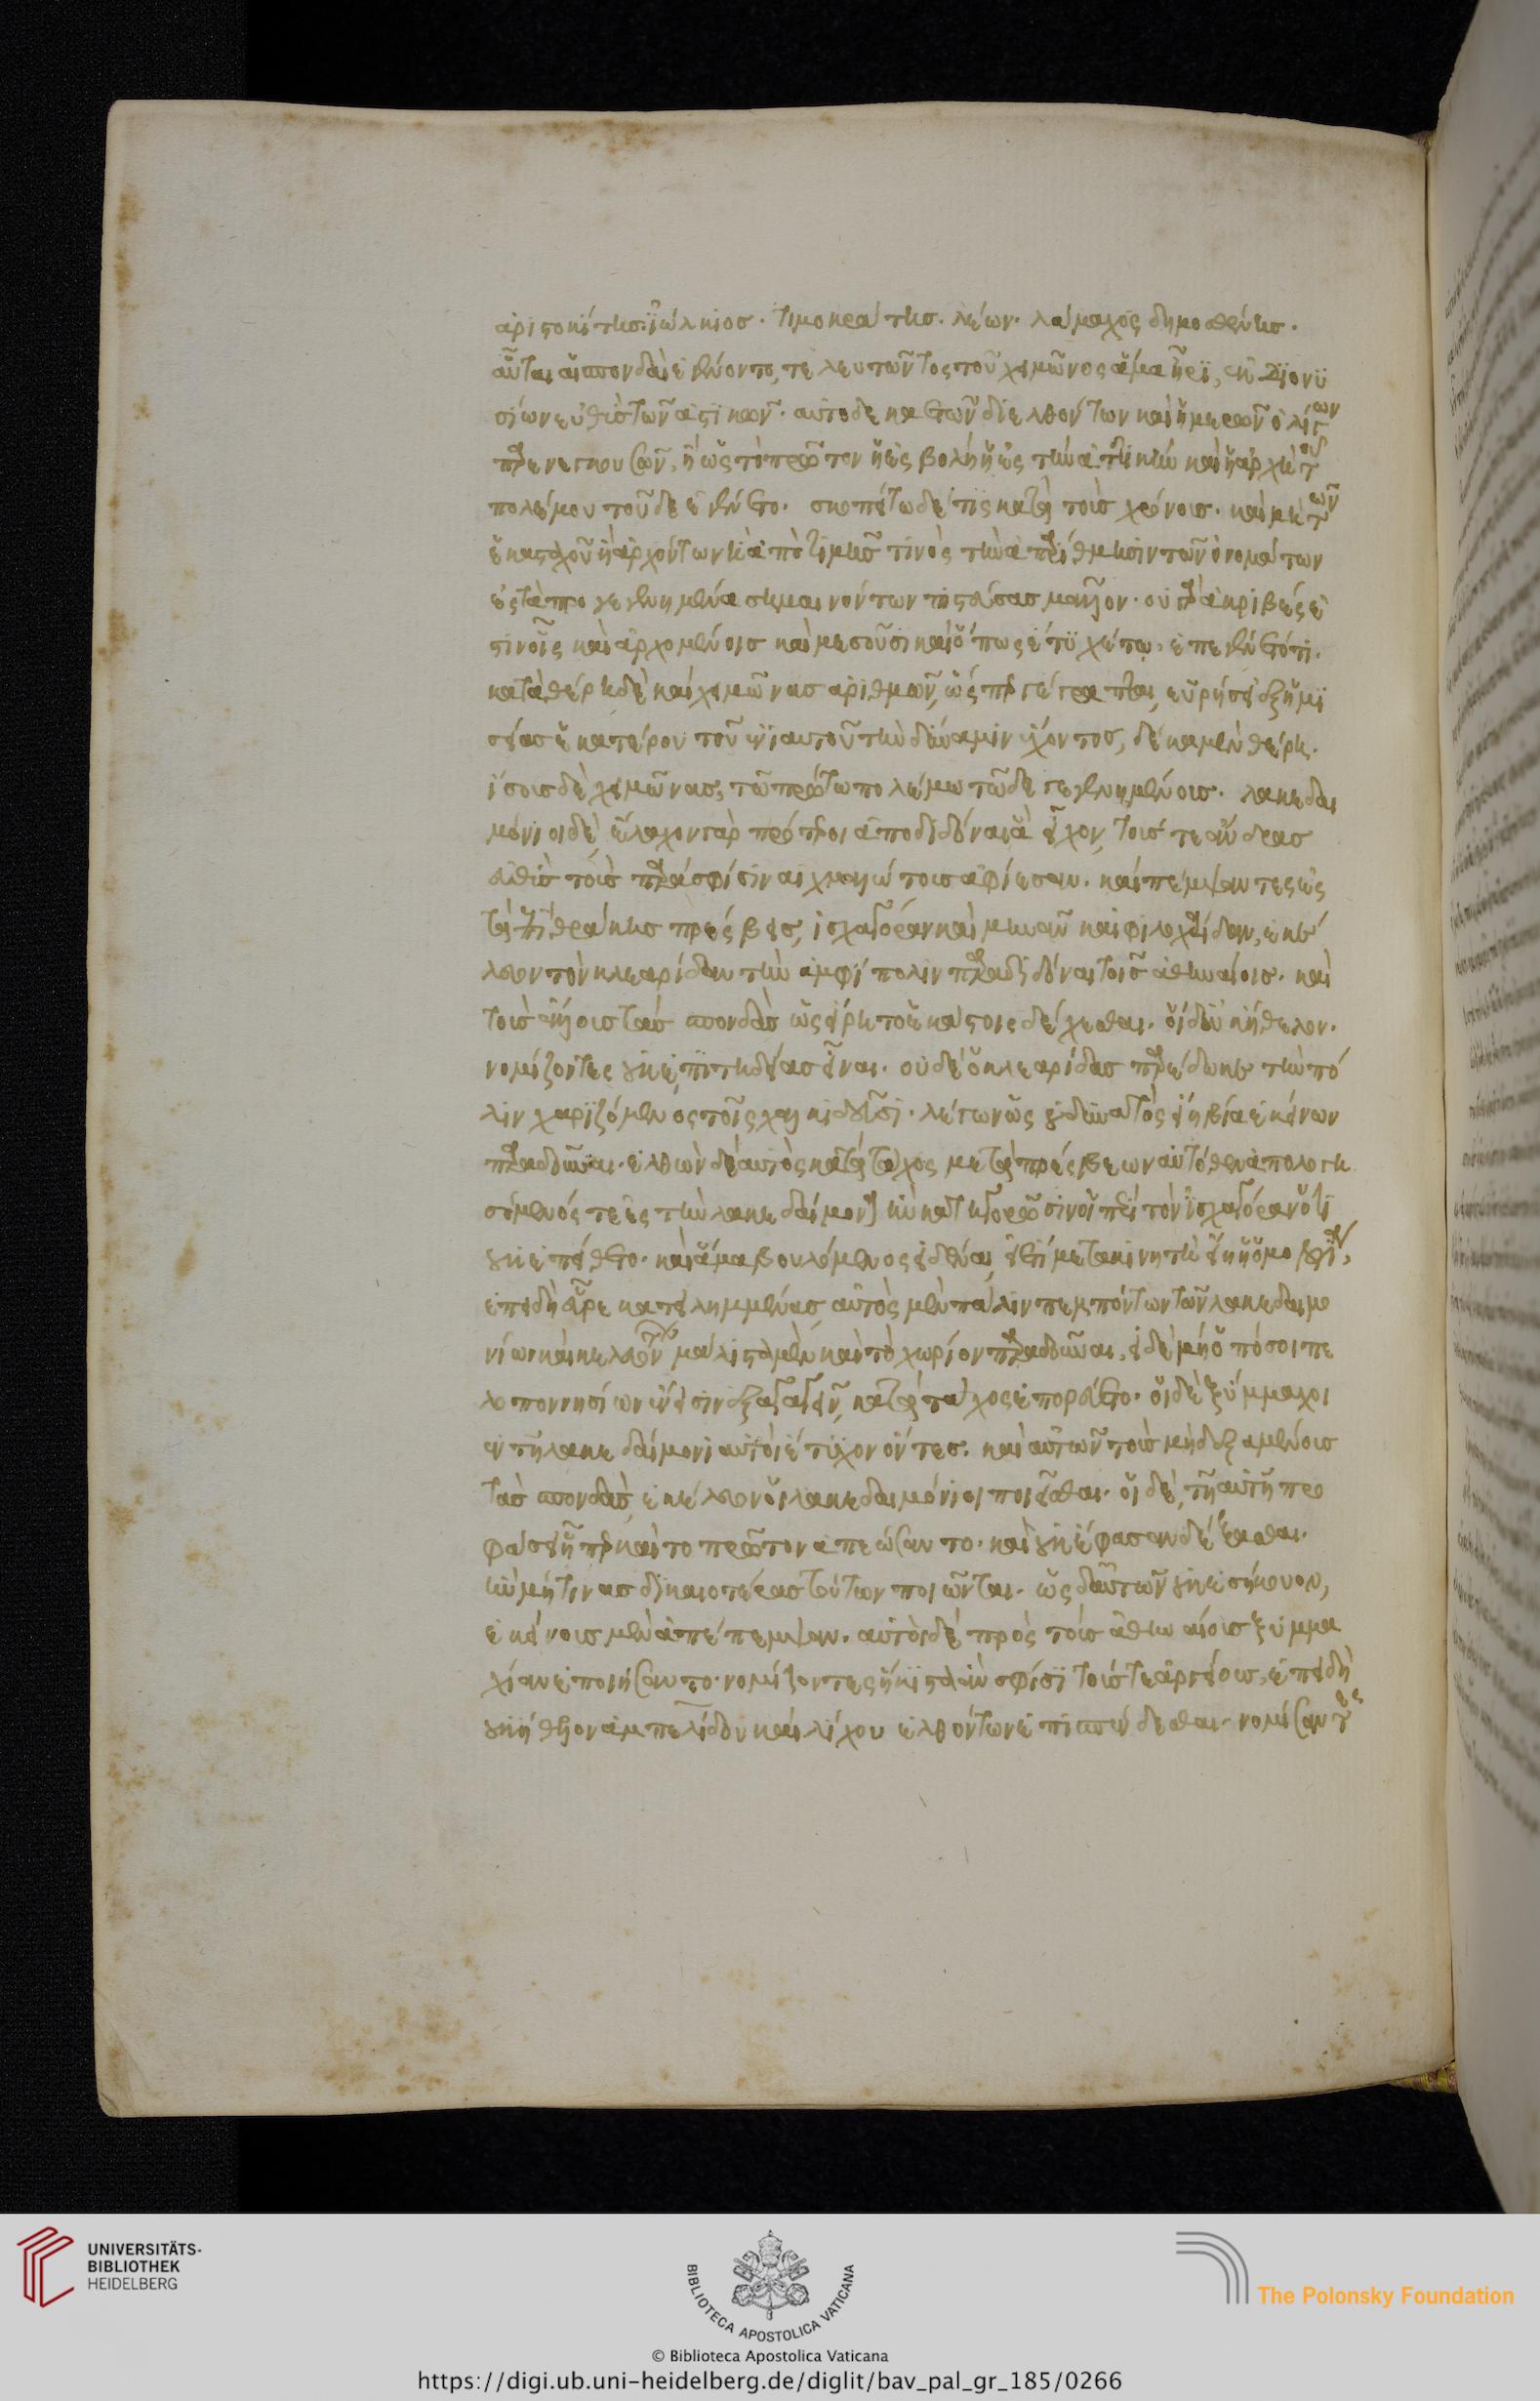 ἀριστοκίτης. ἰώλκιος. τιμοκράτης. λέων. λάμαχος δημοσθένης.
αὗται αἱ σπονδαὶ ἐγένοντο, τελευτῶντος τοῦ χειμῶνος ἅμα ἦρι, ἐκ διονυ
σίων εὐθὺς τῶν ἀστικῶν. αὐτόδεκα ἐτῶν διελθόντων καὶ ἡμερῶν ὀλίγων
παρενεγκουσῶν, ἢ ὡς τὸ πρῶτον ἡ ἐσβολὴ ἡ ἐς τὴν ἀττικὴν καὶ ἡ ἀρχὴ τοῦ
πολέμου τοῦδε ἐγένετο. σκοπείτω δέ τις κατὰ τοὺς χρόνους. καὶ μὴ τῶν
ἑκασταχοῦ ἢ ἀρχόντων ἢ ἀπὸ τιμῆς τινὸς τὴν ἀπαρίθμησιν τῶν ὀνομάτων
ἐς τὰ προγεγενημένα σημαινόντων πιστεύσας μᾶλλον. οὐ γὰρ ἀκριβές ἐ
στιν οἷς καὶ ἀρχομένοις καὶ μεσοῦσι καὶ ὅπως ἔτυχέ τῳ. ἐπεγένετό τι.
κατὰ θέρη δὲ καὶ χειμῶνας ἀριθμῶν, ὥσπερ γέγραπται, εὑρήσει ἐξ ἡμι
σείας ἑκατέρου τοῦ ἐνιαυτοῦ τὴν δύναμιν ἔχοντος, δέκα μὲν θέρη.
ἴσους δὲ χειμῶνας, τῷ πρώτῳ πολέμῳ τῷδε γεγενημένους. λακεδαι
μόνιοι δὲ, ἔλαχον γὰρ πρότεροι ἀποδιδόναι ἃ εἶχον, τούς τε ἄνδρας
εὐθὺς τοὺς παρὰ σφίσιν αἰχμαλώτους ἀφίεσαν. καὶ πέμψαντες ἐς
τὰ ἐπὶ θράκης πρέσβεις, ἰσχαγόραν καὶ μηνᾶν καὶ φιλοχαρίδαν, ἐκέ
λευον τὸν κλεαρίδαν τὴν ἀμφίπολιν παραδιδόναι τοῖς ἀθηναίοις. καὶ
τοὺς ἄλλους τὰς σπονδὰς ὡς εἴρητο ἑκάστοις δέχεσθαι. οἱ δ' οὐκ ἤθελον.
νομίζοντες οὐκ ἐπιτηδείας εἶναι. οὐδὲ ὁ κλεαρίδας παρέδωκε τὴν πό
λιν χαριζόμενος τοῖς χαλκιδεῦσι. λέγων ὡς οὐ δυνατὸς εἴη βίᾳ ἐκείνων
παραδοῦναι. ἐλθὼν δὲ αὐτὸς κατὰ τάχος μετὰ πρέσβεων αὐτόθεν ἀπολογη
σόμενός τε ἐς τὴν λακεδαίμονα ἢν κατηγορῶσιν οἱ περὶ τὸν ἰσχαγόραν ὅτι
οὐκ ἐπείθετο. καὶ ἅμα βουλόμενος εἰδέναι, εἰ ἔτι μετακινητὴ εἴη ἡ ὁμολογία,
ἐπειδὴ εὗρε κατειλημμένας αὐτὸς μὲν πάλιν πεμπόντων τῶν λακεδαιμο
νίων καὶ κελευόντων μάλιστα μὲν καὶ τὸ χωρίον παραδοῦναι, εἰ δὲ μὴ ὁπόσοι πε
λοποννησίων ἔνεισιν ἐξαγαγεῖν, κατὰ τάχος ἐπορεύετο. οἱ δὲ ξύμμαχοι
ἐν τῇ λακεδαίμονι αὐτοὶ ἔτυχον ὄντες. καὶ αὐτῶν τοὺς μὴ δεξαμένους
τὰς σπονδὰς, ἐκέλευον οἱ λακεδαιμόνιοι ποιεῖσθαι. οἱ δὲ, τῇ αὐτῇ προ
φάσει ᾗπερ καὶ τὸ πρῶτον ἀπεώσαντο. καὶ οὐκ ἔφασαν δέξασθαι.
ἢν μή τινας δικαιοτέρας τούτων ποιῶνται. ὡς δ' αὐτῶν οὐκ ἐσήκουον,
ἐκείνους μὲν ἀπέπεμψαν. αὐτοὶ δὲ πρὸς τοὺς ἀθηναίους ξυμμα
χίαν ἐποιήσαντο. νομίζοντες ἥκιστα ἂν σφίσι τούς τε ἀργείους, ἐπειδὴ
οὐκ ἤθελον ἀμπελίδου καὶ λίχου ἐλθόντων ἐπισπένδεσθαι. νομίσαντες
UNIVERSITÄTS-
BIBLIOTHEK
HEIDELBERG
BIBLIOTECA APOSTOLICA VATICANA
The Polonsky Foundation
© Biblioteca Apostolica Vaticana
https://digi.ub.uni-heidelberg.de/diglit/bav_pal_gr_185/0266